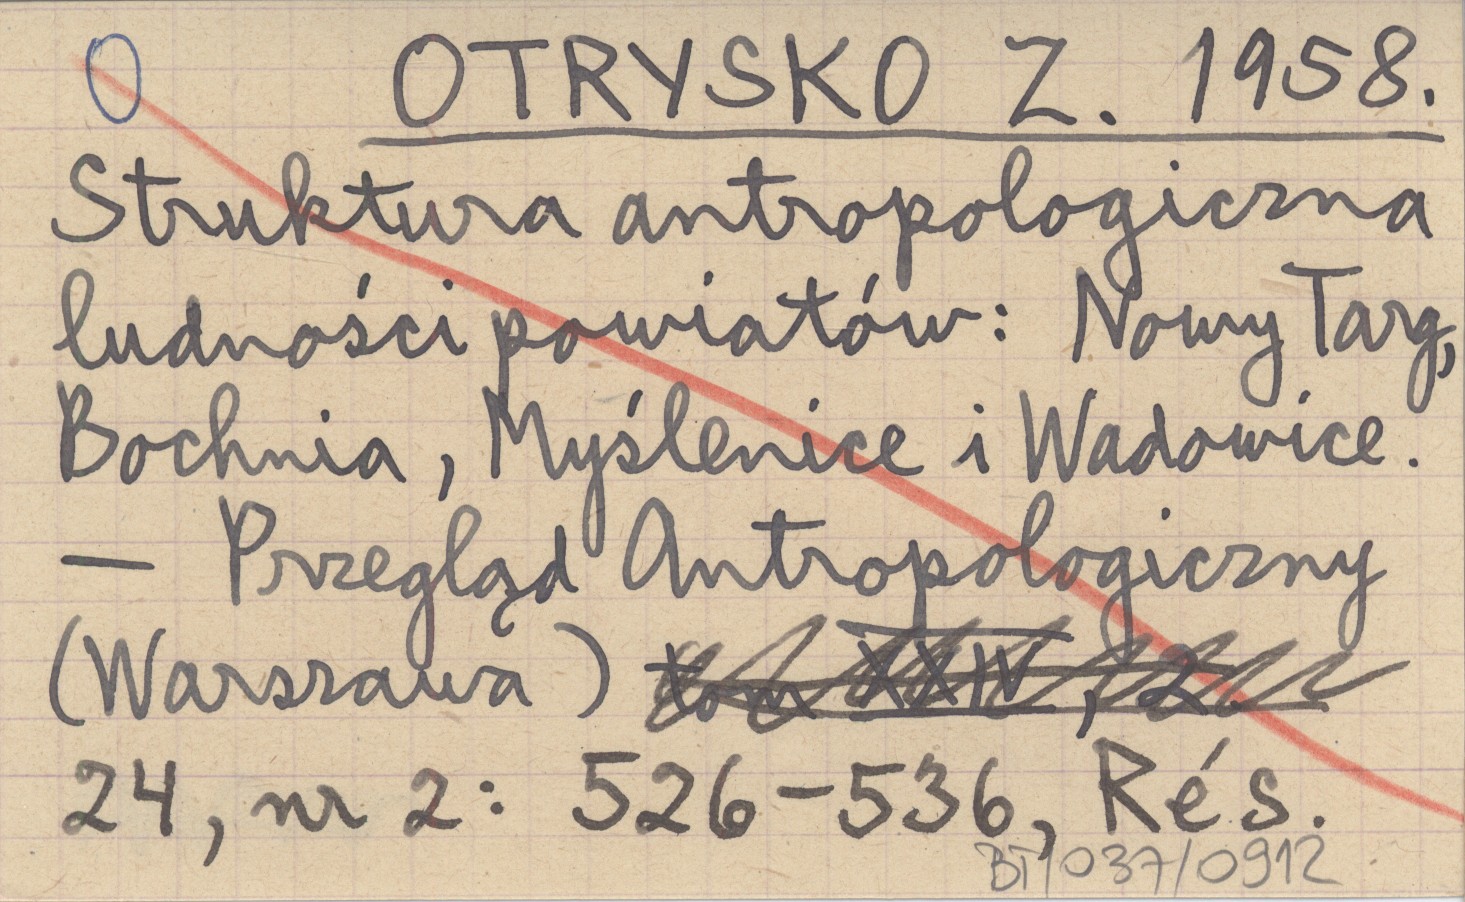 O OTRYSKO Z. 1958.
Struktura antropologiczna
ludności powiatów: Nowy Targ,
Bochnia, Myślenice i Wadowice.
— Przegląd Antropologiczny
(Warszawa) tom XXIV, 2
24, nr 2: 526-536, Rés.
BT/037/0912